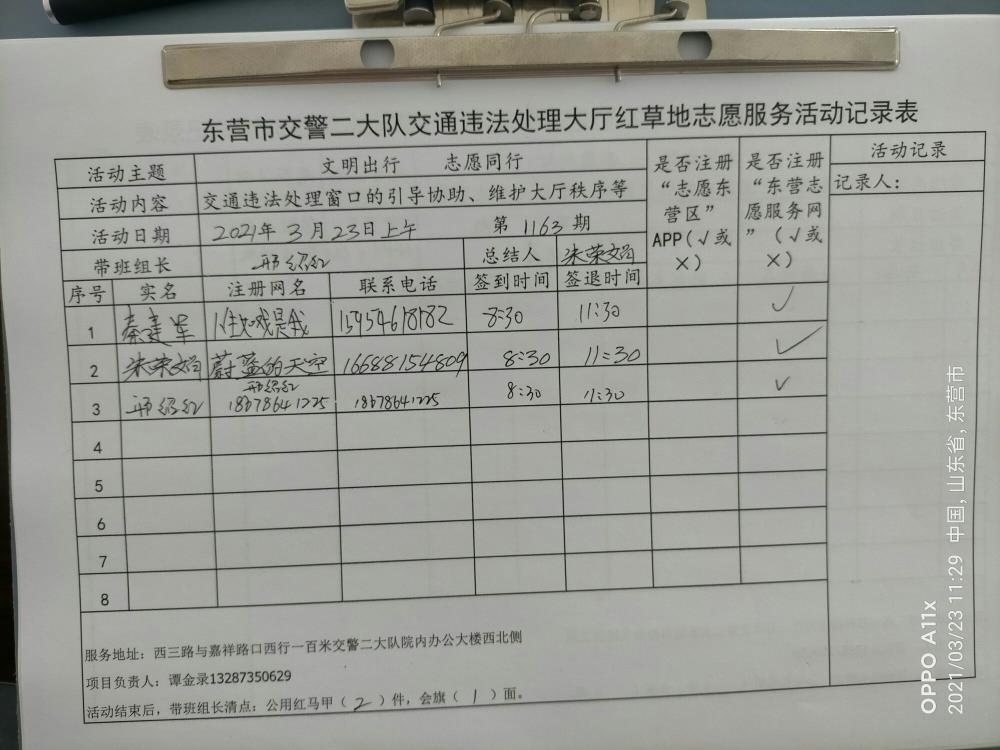 东营市交警二大队交通违法处理大厅红草地志愿服务活动记录表
活动主题 文明出行 志愿同行 是否注册“志愿东营区”APP(√或×) 是否注册“东营志愿服务网”(√或×) 活动记录
活动内容 交通违法处理窗口的引导协助、维护大厅秩序等 记录人:
活动日期 2021年3月23日上午 第1163期
带班组长 邢绍红 总结人 朱荣娟
序号 实名 注册网名 联系电话 签到时间 签退时间
1 秦建军 15954618182 8:30 11:30 √
2 朱荣娟 蔚蓝的天空 16688154809 8:30 11:30 √
邢绍红
3 邢绍红 18678641225 18678641225 8:30 11:30 √
4
5
6
7
8
服务地址:西三路与嘉祥路口西行一百米交警二大队院内办公大楼西北侧
项目负责人:谭金录13287350629
活动结束后,带班组长清点:公用红马甲(2)件,会旗(1)面。
OPPO A11x
2021/03/23 11:29 中国,山东省,东营市